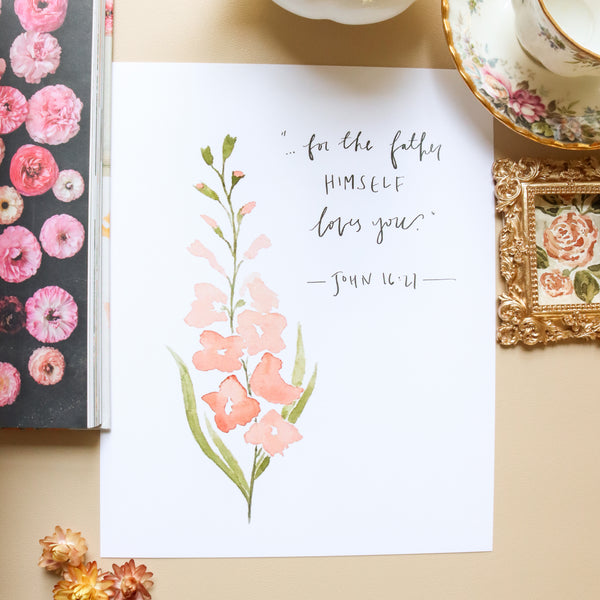 "... for the father
HIMSELF
loves you."
— JOHN 16:27 —